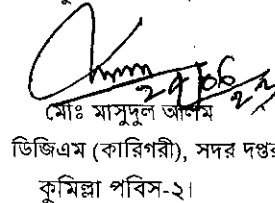 ২৪/০৬/২২
মোঃ মাসুদুল আলম
ডিজিএম (কারিগরী), সদর দপ্তর
কুমিল্লা পবিস-২।